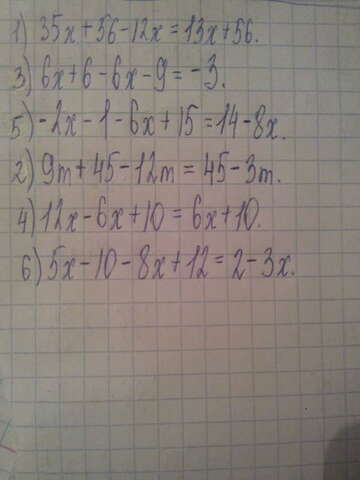 1) 35x+56-12x=13x+56.
3) 6x+6-6x-9=-3.
5) -2x-1-6x+15=14-8x.
2) 9m+45-12m=45-3m.
4) 12x-6x+10=6x+10.
6) 5x-10-8x+12=2-3x.